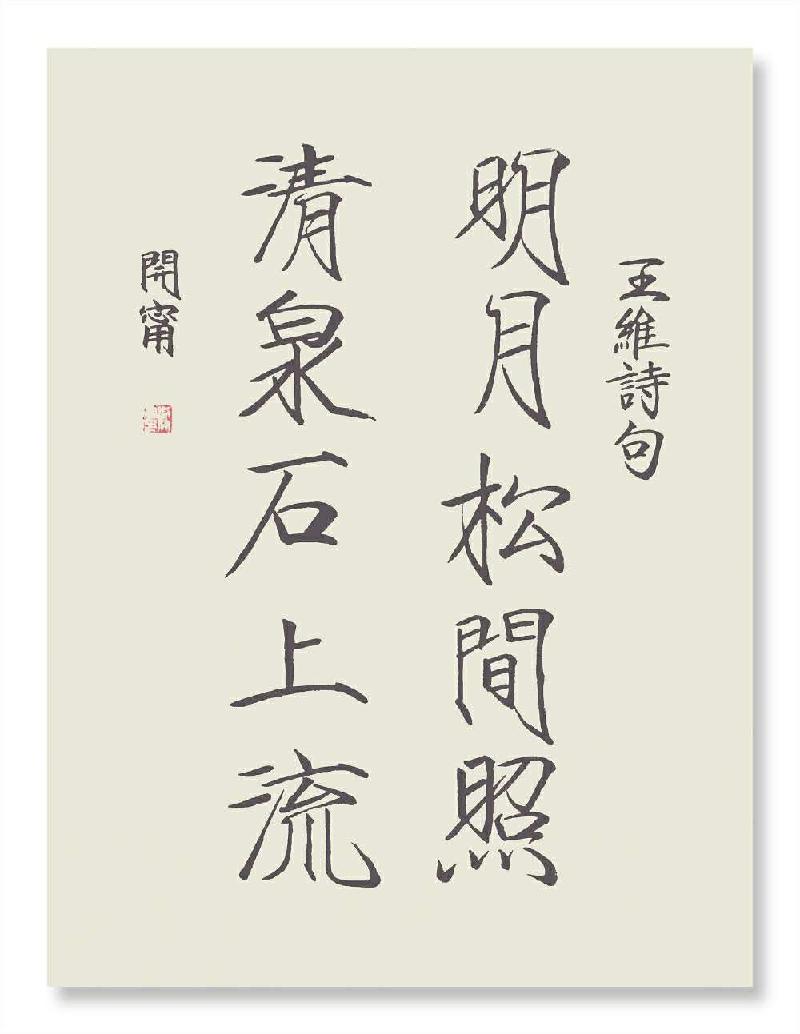 王維詩句
明月松間照
清泉石上流
開甯